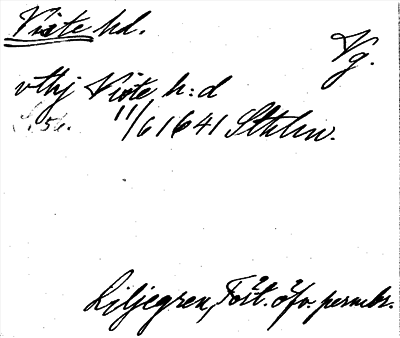 Viste hd.
Vg.
vthj Viste h:d
11/6 1641 Sthlm.
Liljegren, Fört. öfv. permbr.